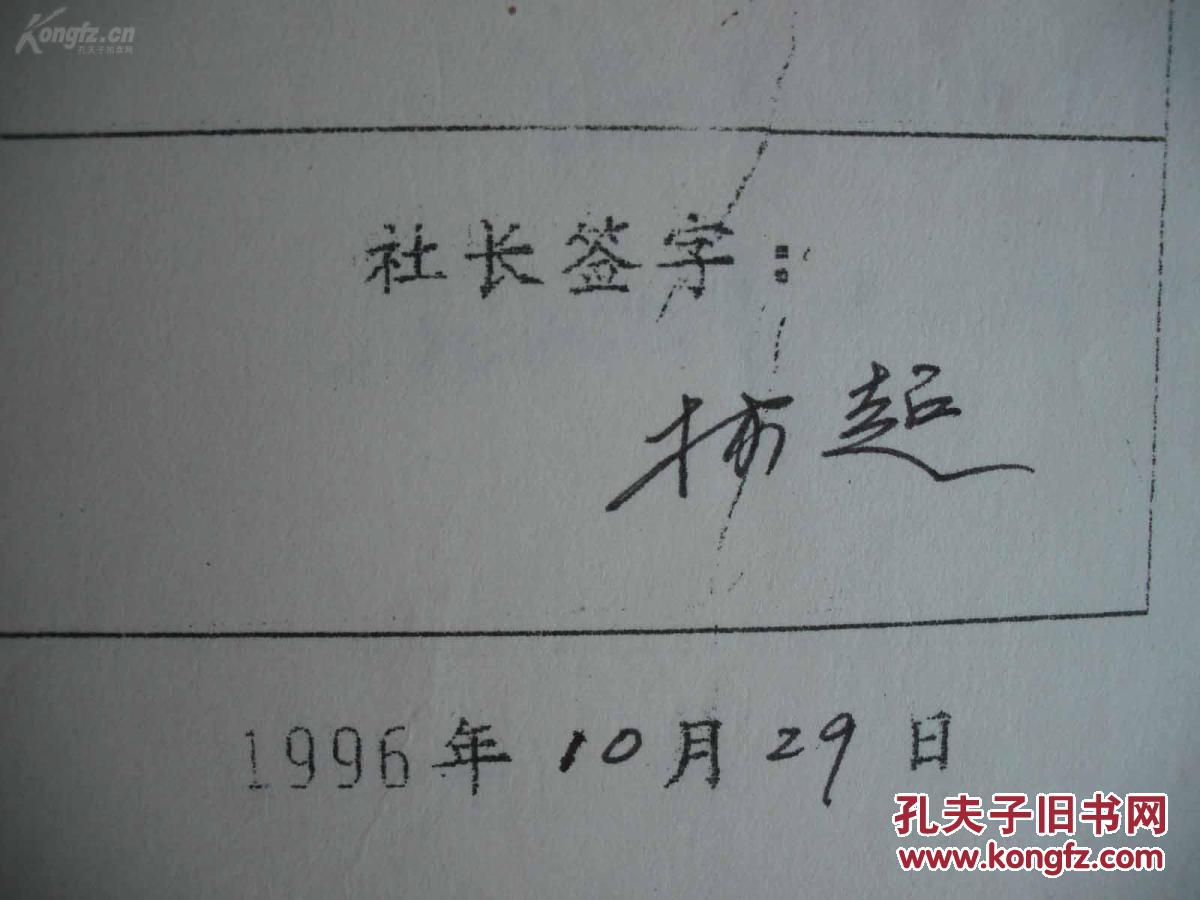 Kongfz.cn
孔夫子拍卖网
社长签字：
杨超
1996年10月29日
孔夫子旧书网
www.kongfz.com